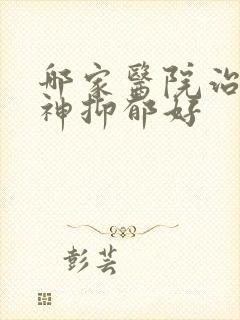 那家醫院治
神抑郁好
彭芸